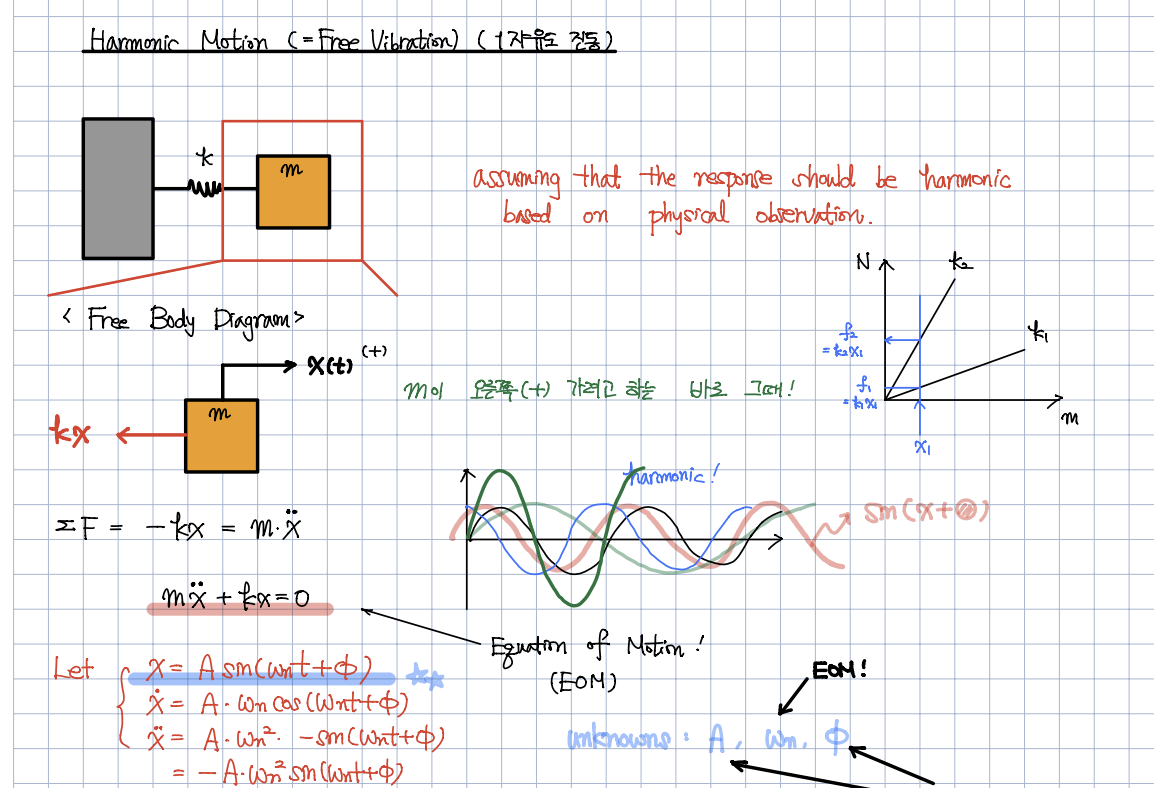 Harmonic Motion (=Free Vibration) (1자유도 진동)
k
m
assuming that the response should be harmonic
based on physical observation.
N
k₂
k₁
f₂
= k₂x₁
f₁
= k₁x₁
x₁
m
< Free Body Diagram>
x(t) (+)
m
kx
m이 오른쪽(+) 가려고 하는 바로 그때!
harmonic!
sin(x+@)
ΣF = -kx = m·ẍ
mẍ + kx = 0
Equation of Motion!
(EOM)
Let
x = A sin(ωnt+ϕ) ☆☆
ẋ = A·ωn cos(ωnt+ϕ)
ẍ = A·ωn²· -sin(ωnt+ϕ)
= -A·ωn² sin(ωnt+ϕ)
EOM!
unknowns : A, ωn, ϕ